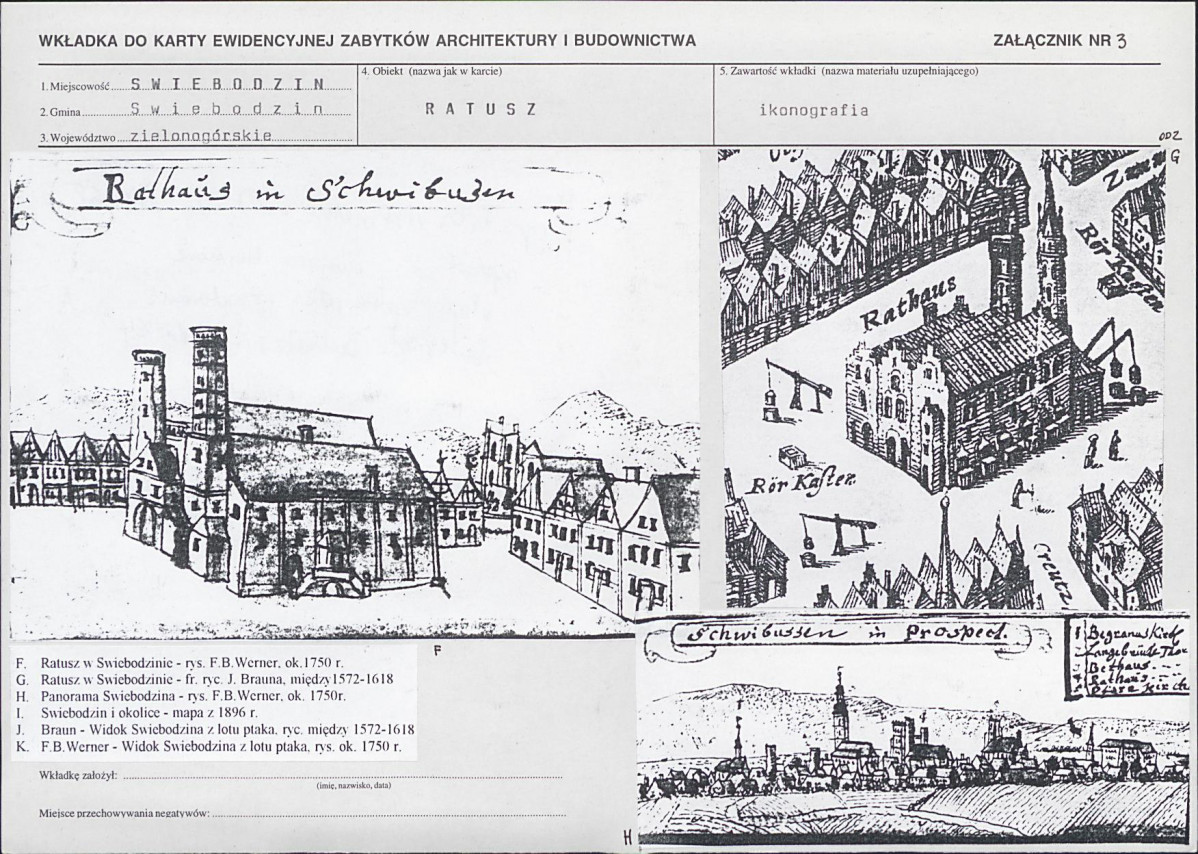 WKŁADKA DO KARTY EWIDENCYJNEJ ZABYTKÓW ARCHITEKTURY I BUDOWNICTWA
ZAŁĄCZNIK NR 3
1. Miejscowość SWIEBODZIN
2. Gmina Swiebodzin
3. Województwo zielonogórskie
4. Obiekt (nazwa jak w karcie)
RATUSZ
5. Zawartość wkładki (nazwa materiału uzupełniającego)
ikonografia
ODZ
G
Rathaus in Schwibußen
Rör Kasten
Rathaus
Rör Kasten
Creutz
F
Schwibussen in Prospect.
Bethaus
Rathaus
F. Ratusz w Swiebodzinie - rys. F.B.Werner, ok.1750 r.
G. Ratusz w Swiebodzinie - fr. ryc. J. Brauna, między1572-1618
H. Panorama Swiebodzina - rys. F.B.Werner, ok. 1750r.
I. Swiebodzin i okolice - mapa z 1896 r.
J. Braun - Widok Swiebodzina z lotu ptaka, ryc. między 1572-1618
K. F.B.Werner - Widok Swiebodzina z lotu ptaka, rys. ok. 1750 r.
Wkładkę założył:
(imię, nazwisko, data)
Miejsce przechowywania negatywów:
H